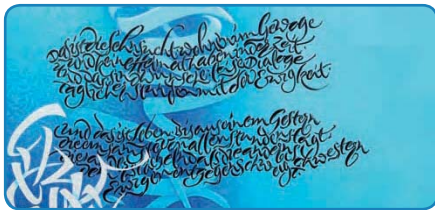 Das ist die Sehnsucht: wohnen im Gewoge
und keine Heimat haben in der Zeit.
Und das sind Wünsche: leise Dialoge
täglicher Stunden mit der Ewigkeit.
Und das ist Leben. Bis aus einem Gestern
die einsamste von allen Stunden steigt,
die anders lächelnd als die andern Schwestern
dem Ewigen entgegenschweigt.